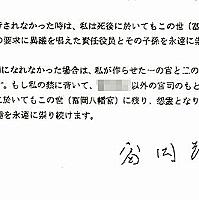 行されなかった時は、私は死後に於いてもこの世（富
の要求に異議を唱えた責任役員とその子孫を永遠に祟
になれなかった場合は、私が作らせた一の宮と二の
す。もし私の猿に背いて、以外の宮司のもと
に於いてもこの世（富岡八幡宮）に残り、怨霊となり
を永遠に祟り続けます。
富岡